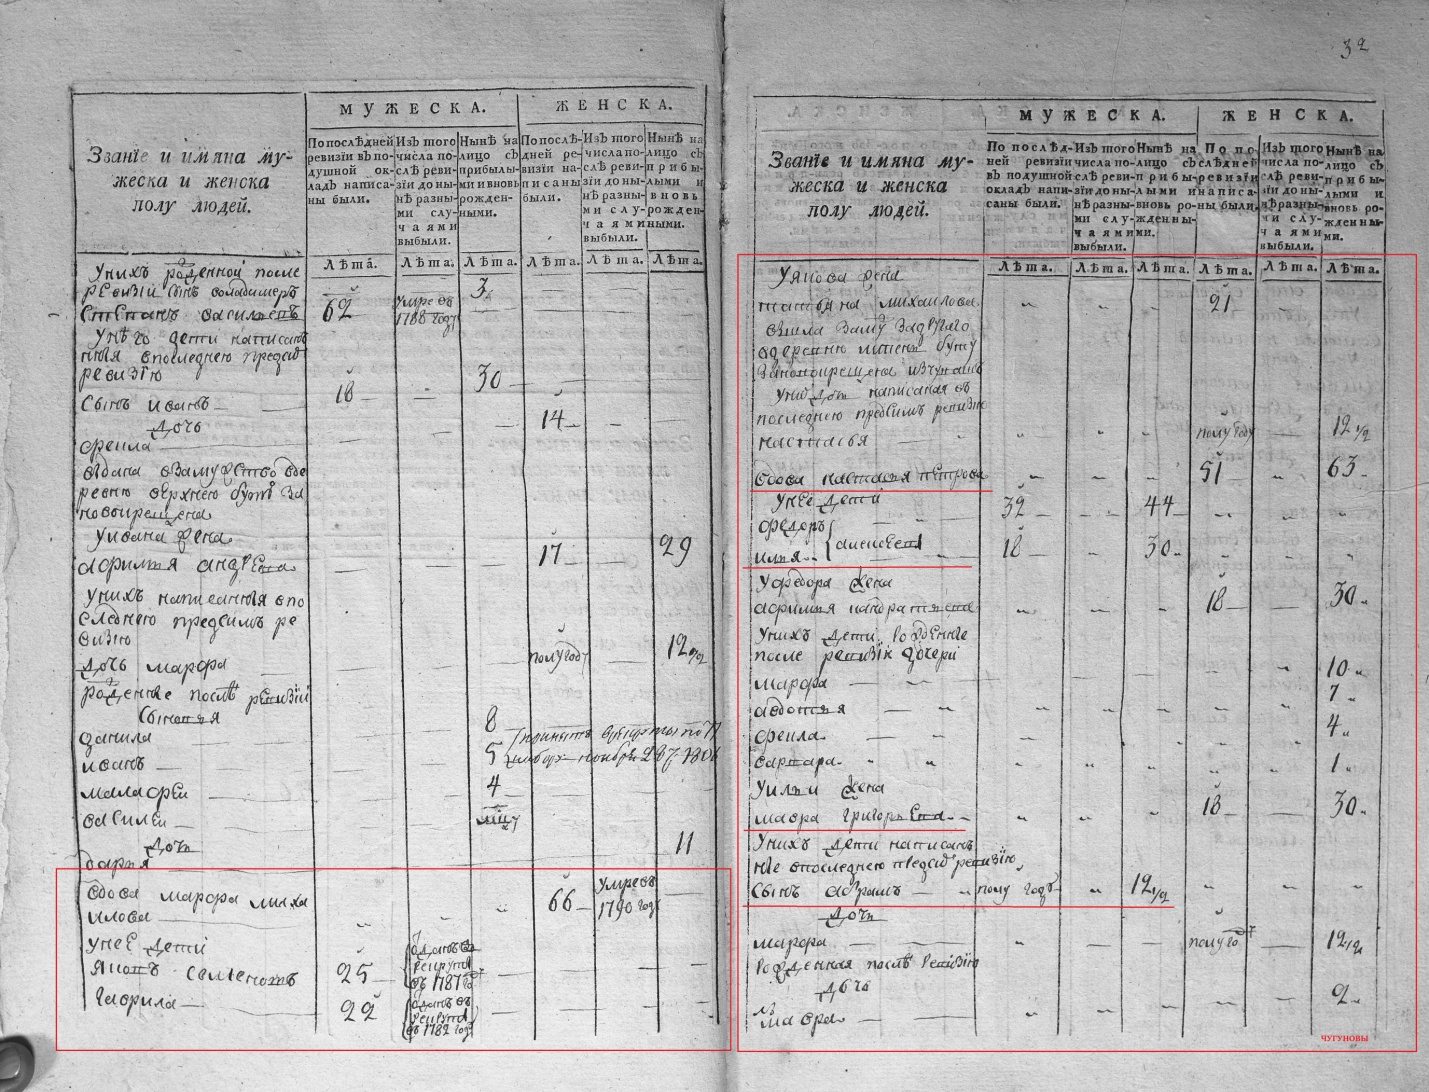 32
МУЖЕСКА.
ЖЕНСКА.
Званїе и имяна му-
жеска и женска
полу людей.
По послѣдней
ревизїи въ по-
душной ок-
ладъ написа-
ны были.
Изъ того
числа по-
слѣ реви-
зїи до ны-
нѣ разны-
ми слу-
чаями
выбыли.
Нынѣ на
лицо съ
прибылы-
ми и вновь
рожден-
ными.
По послѣ-
дней ре-
визїи на-
писаны
были.
Изъ того
числа по-
слѣ реви-
зїи до ны-
нѣ разны-
ми слу-
чаями
выбыли.
Нынѣ на
лицо съ
прибы-
лыми и
вновь
рожден-
ными.
Лѣта. Лѣта. Лѣта. Лѣта. Лѣта. Лѣта.
Унихъ рожденной после
ревизїи сынъ володимеръ 3
Степанъ васильевъ 62 умре въ 1788 году
Унѣго дети написан
ныя впоследнею предсид
ревизїю
Сынъ иванъ 18 30
Дочь
Фекла 14
выдана взамужство вде
ревню верхнею
Уивана жена
афимья андреева 17 29
Унихъ написанныя впо
следнею предсимъ ре
визїю
Дочь марфа полугоду 12 1/2
рожденые послѣ ревизїи
Сыновья
данила 8
иванъ 5
малафеи 4
василеи
Дочь
дарья 11
вдова марфа миха
илова 66 умре въ 1790 году
унеѣ дети
Яковъ семеновъ 25 отданъ в рекруты въ 1787 го
Гаврила 22 отданъ въ рекруты въ 1782 году
МУЖЕСКА.
ЖЕНСКА.
Званїе и имяна му-
жеска и женска
полу людей.
По послѣд-
ней ревизїи
въ подушной
окладъ напи-
саны были.
Изъ того
числа по-
слѣ реви-
зїи до ны-
нѣ разны-
ми слу-
чаями
выбыли.
Нынѣ на
лицо съ
прибы-
лыми и
вновь ро-
жденны-
ми.
По по-
слѣдней
ревизїи
написа-
ны были.
Изъ того
числа по-
слѣ реви-
зїи до ны-
нѣ разны-
ми слу-
чаями
выбыли.
Нынѣ на
лицо съ
прибы-
лыми и
вновь ро-
жденны-
ми.
Лѣта. Лѣта. Лѣта. Лѣта. Лѣта. Лѣта.
Уякова жена
татьяна михаилова 21
вышла взамужъ вдругую
деревню
Унихъ дочь написаная въ
последнею предсимъ ревизїю
настасья полугоду 12 1/2
вдова настасья петрова 51 63
Унеѣ дети
федоръ 32 44
илья алексеевы 18 30
Уфедора жена
афимья кондратьева 18 30
Унихъ дети рожденые
после ревизїи дочери
марфа 10
авдотья 7
фекла 4
варвара 1
Уильи жена
мавра григорьева 18 30
Унихъ дети написан
ные впоследнею предсид ревизїю
Сынъ абрамъ полу годъ 12 1/2
Дочь
марфа полуго 12 1/2
Рожденная послѣ ревизїи
Дочь
мавра 2
ЧУГУНОВЫ